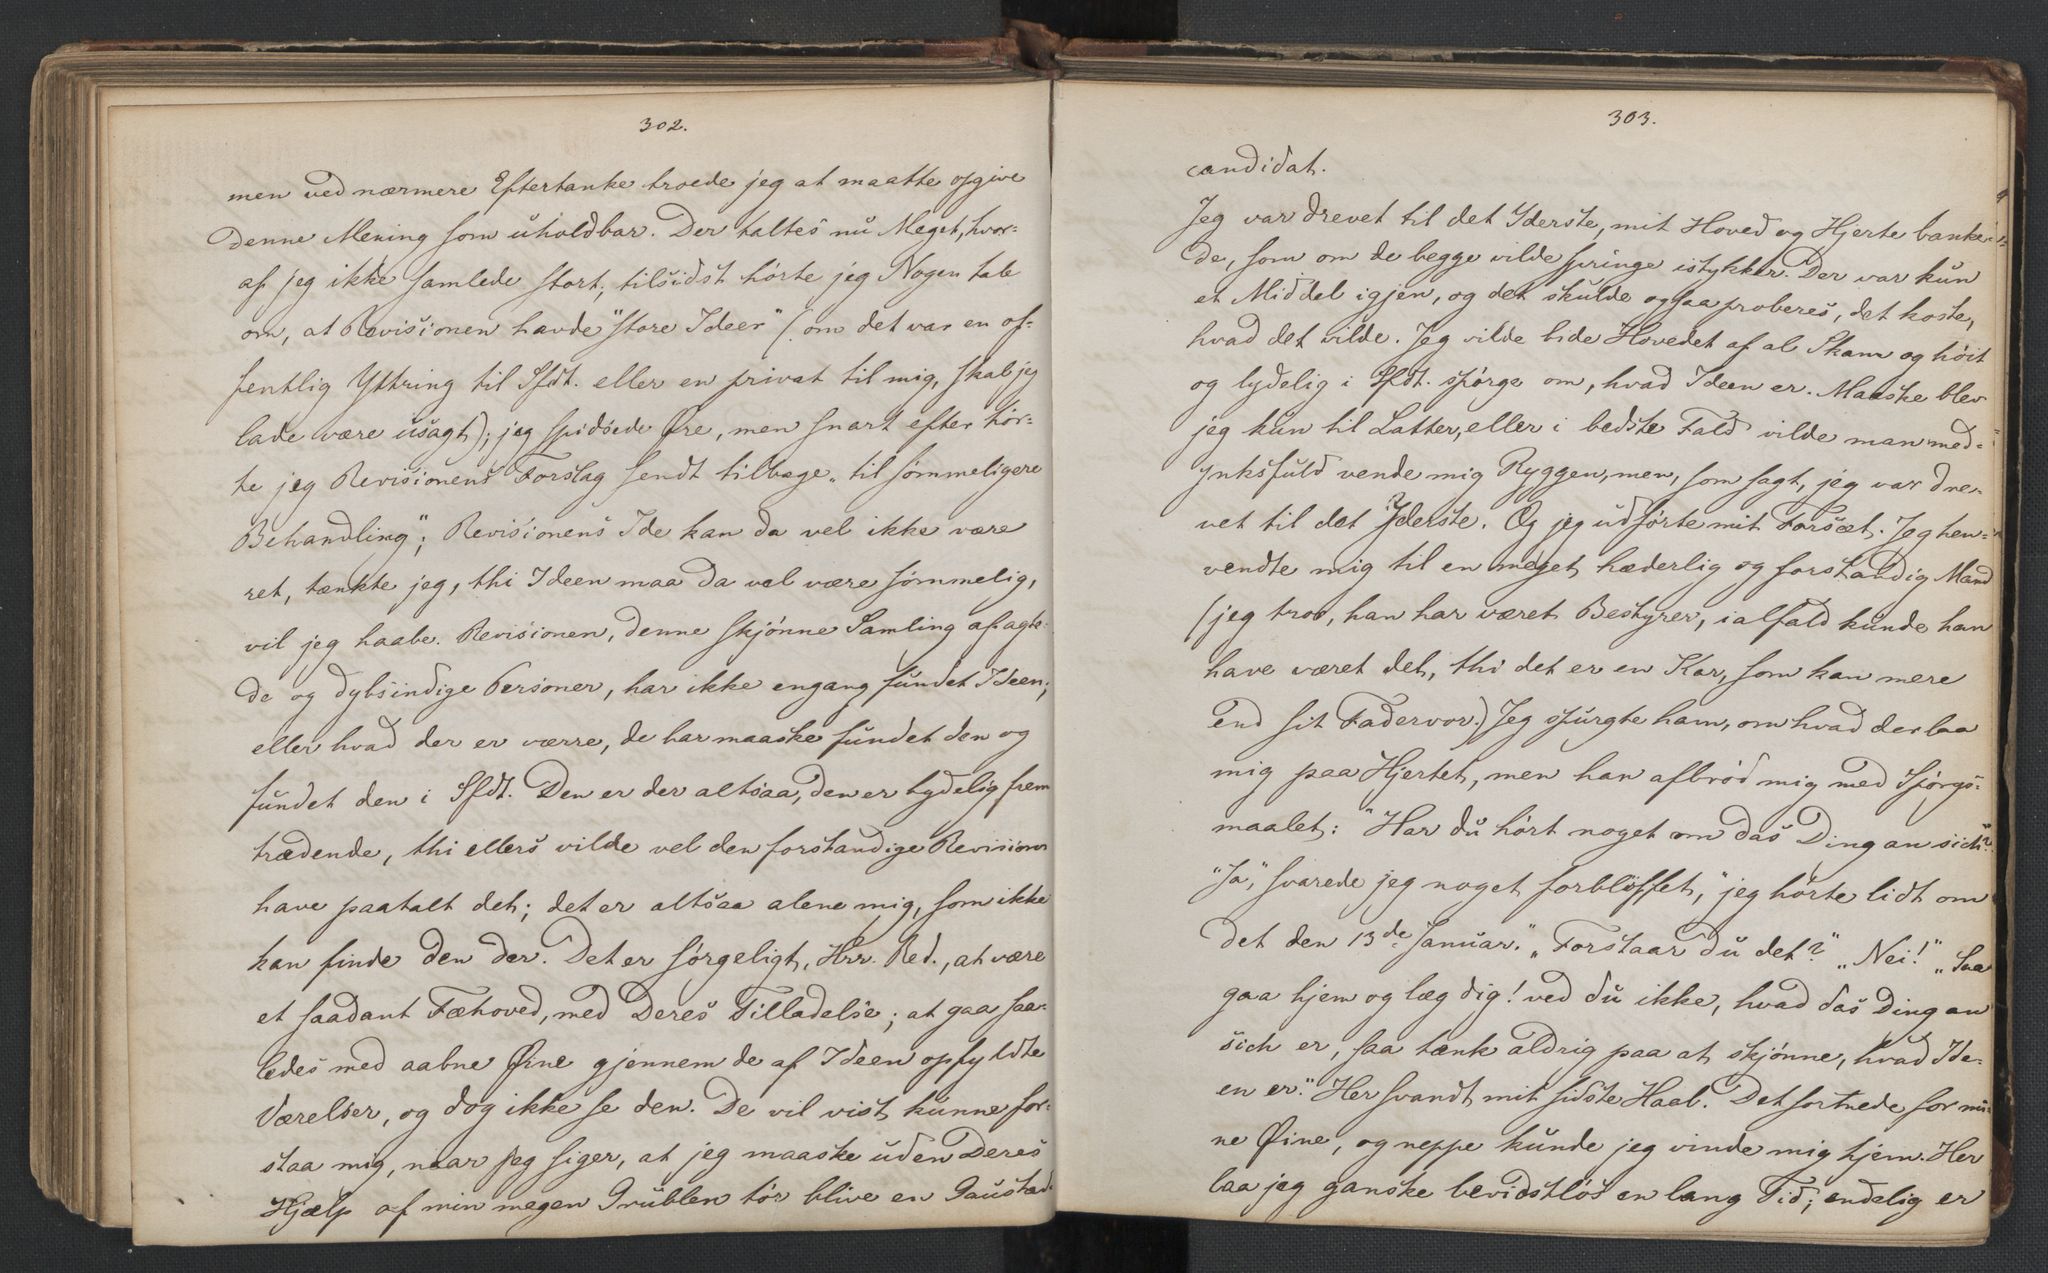 302.
men ved nærmere Eftertanke troede jeg at maatte opgive
denne Mening som uholdbar. Der taltes nu Meget, hvor-
af jeg ikke samlede stort; tilsidst hørte jeg Nogen tale
om, at Revisionen havde "store Ideer" (om det var en of-
fentlig Yttring til Sfdt. eller en privat til mig, skal jeg
lade være usagt); jeg spidsede Øre, men snart efter hør-
te jeg Revisionens Forslag sendt tilbage „til sømmeligere
Behandling"; Revisionens Ide kan da vel ikke være
ret, tænkte jeg, thi Ideen maa da vel være sømmelig,
vil jeg haabe. Revisionen, denne skjønne Samling af agte-
de og dybsindige Personer, har ikke engang fundet Ideen;
eller hvad der er værre, de har maaske fundet den og
fundet den i Sfdt. Den er der altsaa, den er tydelig frem
trædende, thi ellers vilde vel den forstandige Revision
have paatalt det; det er altsaa alene mig, som ikke
kan finde den der. Det er sørgeligt, Hrr. Red., at være
et saadant Fæhoved, med Deres Tilladelse; at gaa saa-
ledes med aabne Øine gjennem de af Ideen opfyldte
Værelser, og dog ikke se den. De vil vist kunne for-
staa mig, naar jeg siger, at jeg maaske uden Deres
Hjælp af min megen Grublen tør blive en Gaustad-
303.
candidat.
Jeg var drevet til det Yderste, mit Hoved og Hjerte banke-
de, som om de begge vilde springe istykker. Der var kun
et Middel igjen, og det skulde ogsaa proberes, det koste,
hvad det vilde. Jeg vilde bide Hovedet af al Skam og høit
og lydelig i Sfdt. spørge om, hvad Ideen er. Maaske blev
jeg kun til Latter, eller i bedste Fald vilde man med-
ynksfuld vende mig Ryggen, men, som sagt, jeg var dre-
vet til det Yderste. Og jeg udførte mit Forsæt. Jeg hen-
vendte mig til en meget hæderlig og forstandig Mand
(jeg tror, han har været Bestyrer, ialfald kunde han
have været det, thi det er en Kar, som kan mere
end sit Fadervor.) Jeg spurgte ham, om hvad der laa
mig paa Hjertet, men han afbrød mig med Spørgs-
maalet: "Har du hørt noget om das Ding an sich?"
"Ja," svarede jeg noget forbløffet, "jeg hørte lidt om
det den 13de Januar." „Forstaar du det?" „Nei!" „Saa
gaa hjem og læg dig! ved du ikke, hvad das Ding an
sich er, saa tænk aldrig paa at skjønne, hvad Ide-
en er." Her svandt mit sidste Haab. Det sortnede for mi-
ne Øine, og neppe kunde jeg vinde mig hjem. Her
laa jeg ganske bevidstløs en lang Tid; endelig er